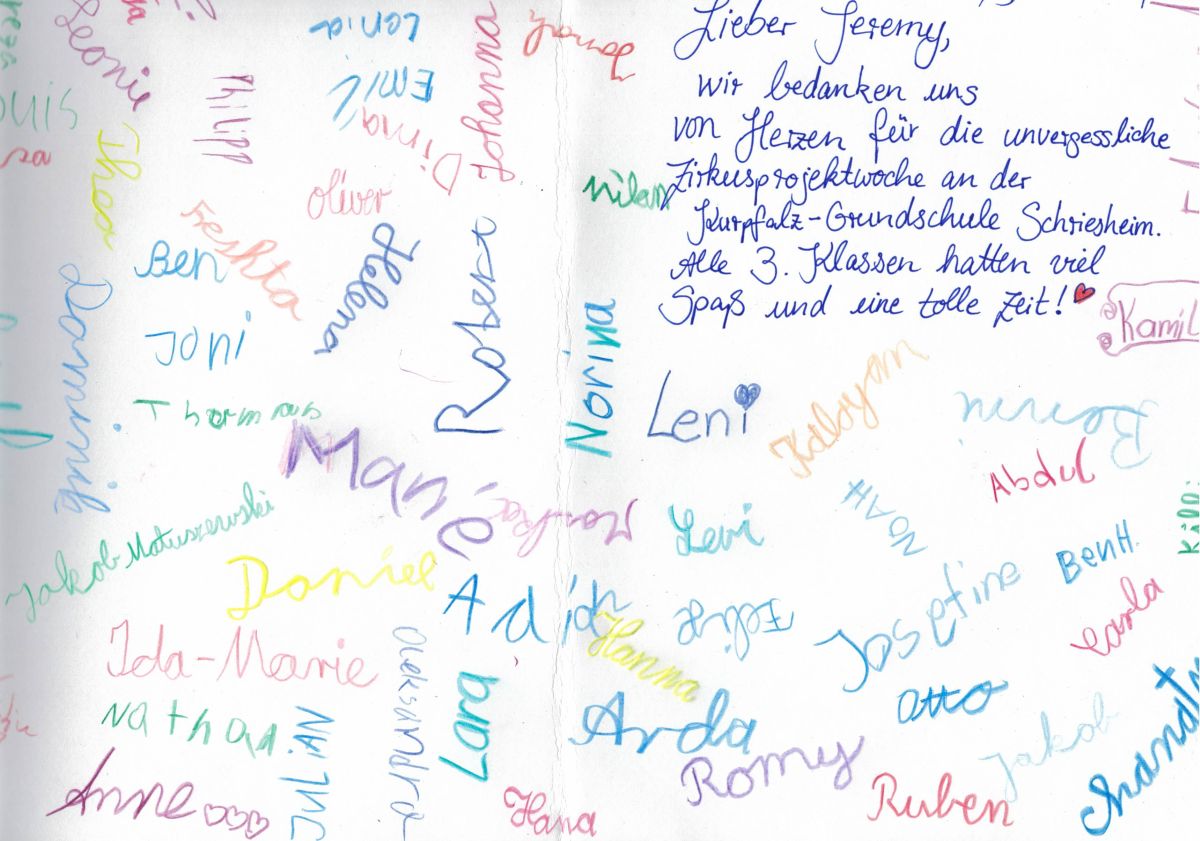 Lieber Jeremy,
wir bedanken uns
von Herzen für die unvergessliche
Zirkusprojektwoche an der
Kurpfalz-Grundschule Schriesheim.
Alle 3. Klassen hatten viel
Spaß und eine tolle Zeit!
Leonie
Lenia
Johanna
Jonah
Philipp
Emil
Dima
Theo
Oliver
Milan
Freshta
Ben
Helena
Robert
Joni
Dominij
Thomas
Norina
Kamil
Leni
Kaloyan
Marie
Abdul
NOAH
Levi
Jakob Matuszewski
Daniel
BenH.
Adian
Felix
Josefine
Carla
Hanna
Ida-Marie
Oleksandra
Lara
Otto
Nathan
Arda
JULiAN
Jakob
Romy
Anne
Hana
Ruben